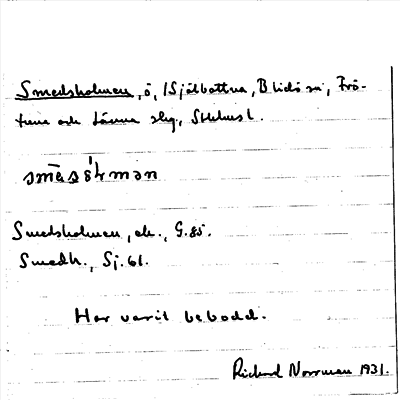 Smedsholmen, ö, i Själbottna, Blidö sn, Frö-
tuna och Länna slg, Sthlms l.
smēsó̜ḷmən
Smedsholmen, ek., G. 85.
Smedh., Sj. 61.
Har varit bebodd.
Rickard Norrman 1931.